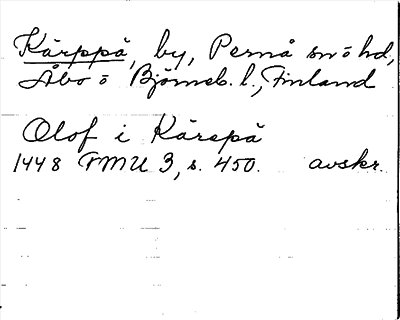 Kärppä, by, Pernå sn o hd,
Åbo o Björneb. l., Finland
Olof i Kärspä
1448 FMU 3, s. 450. avskr.